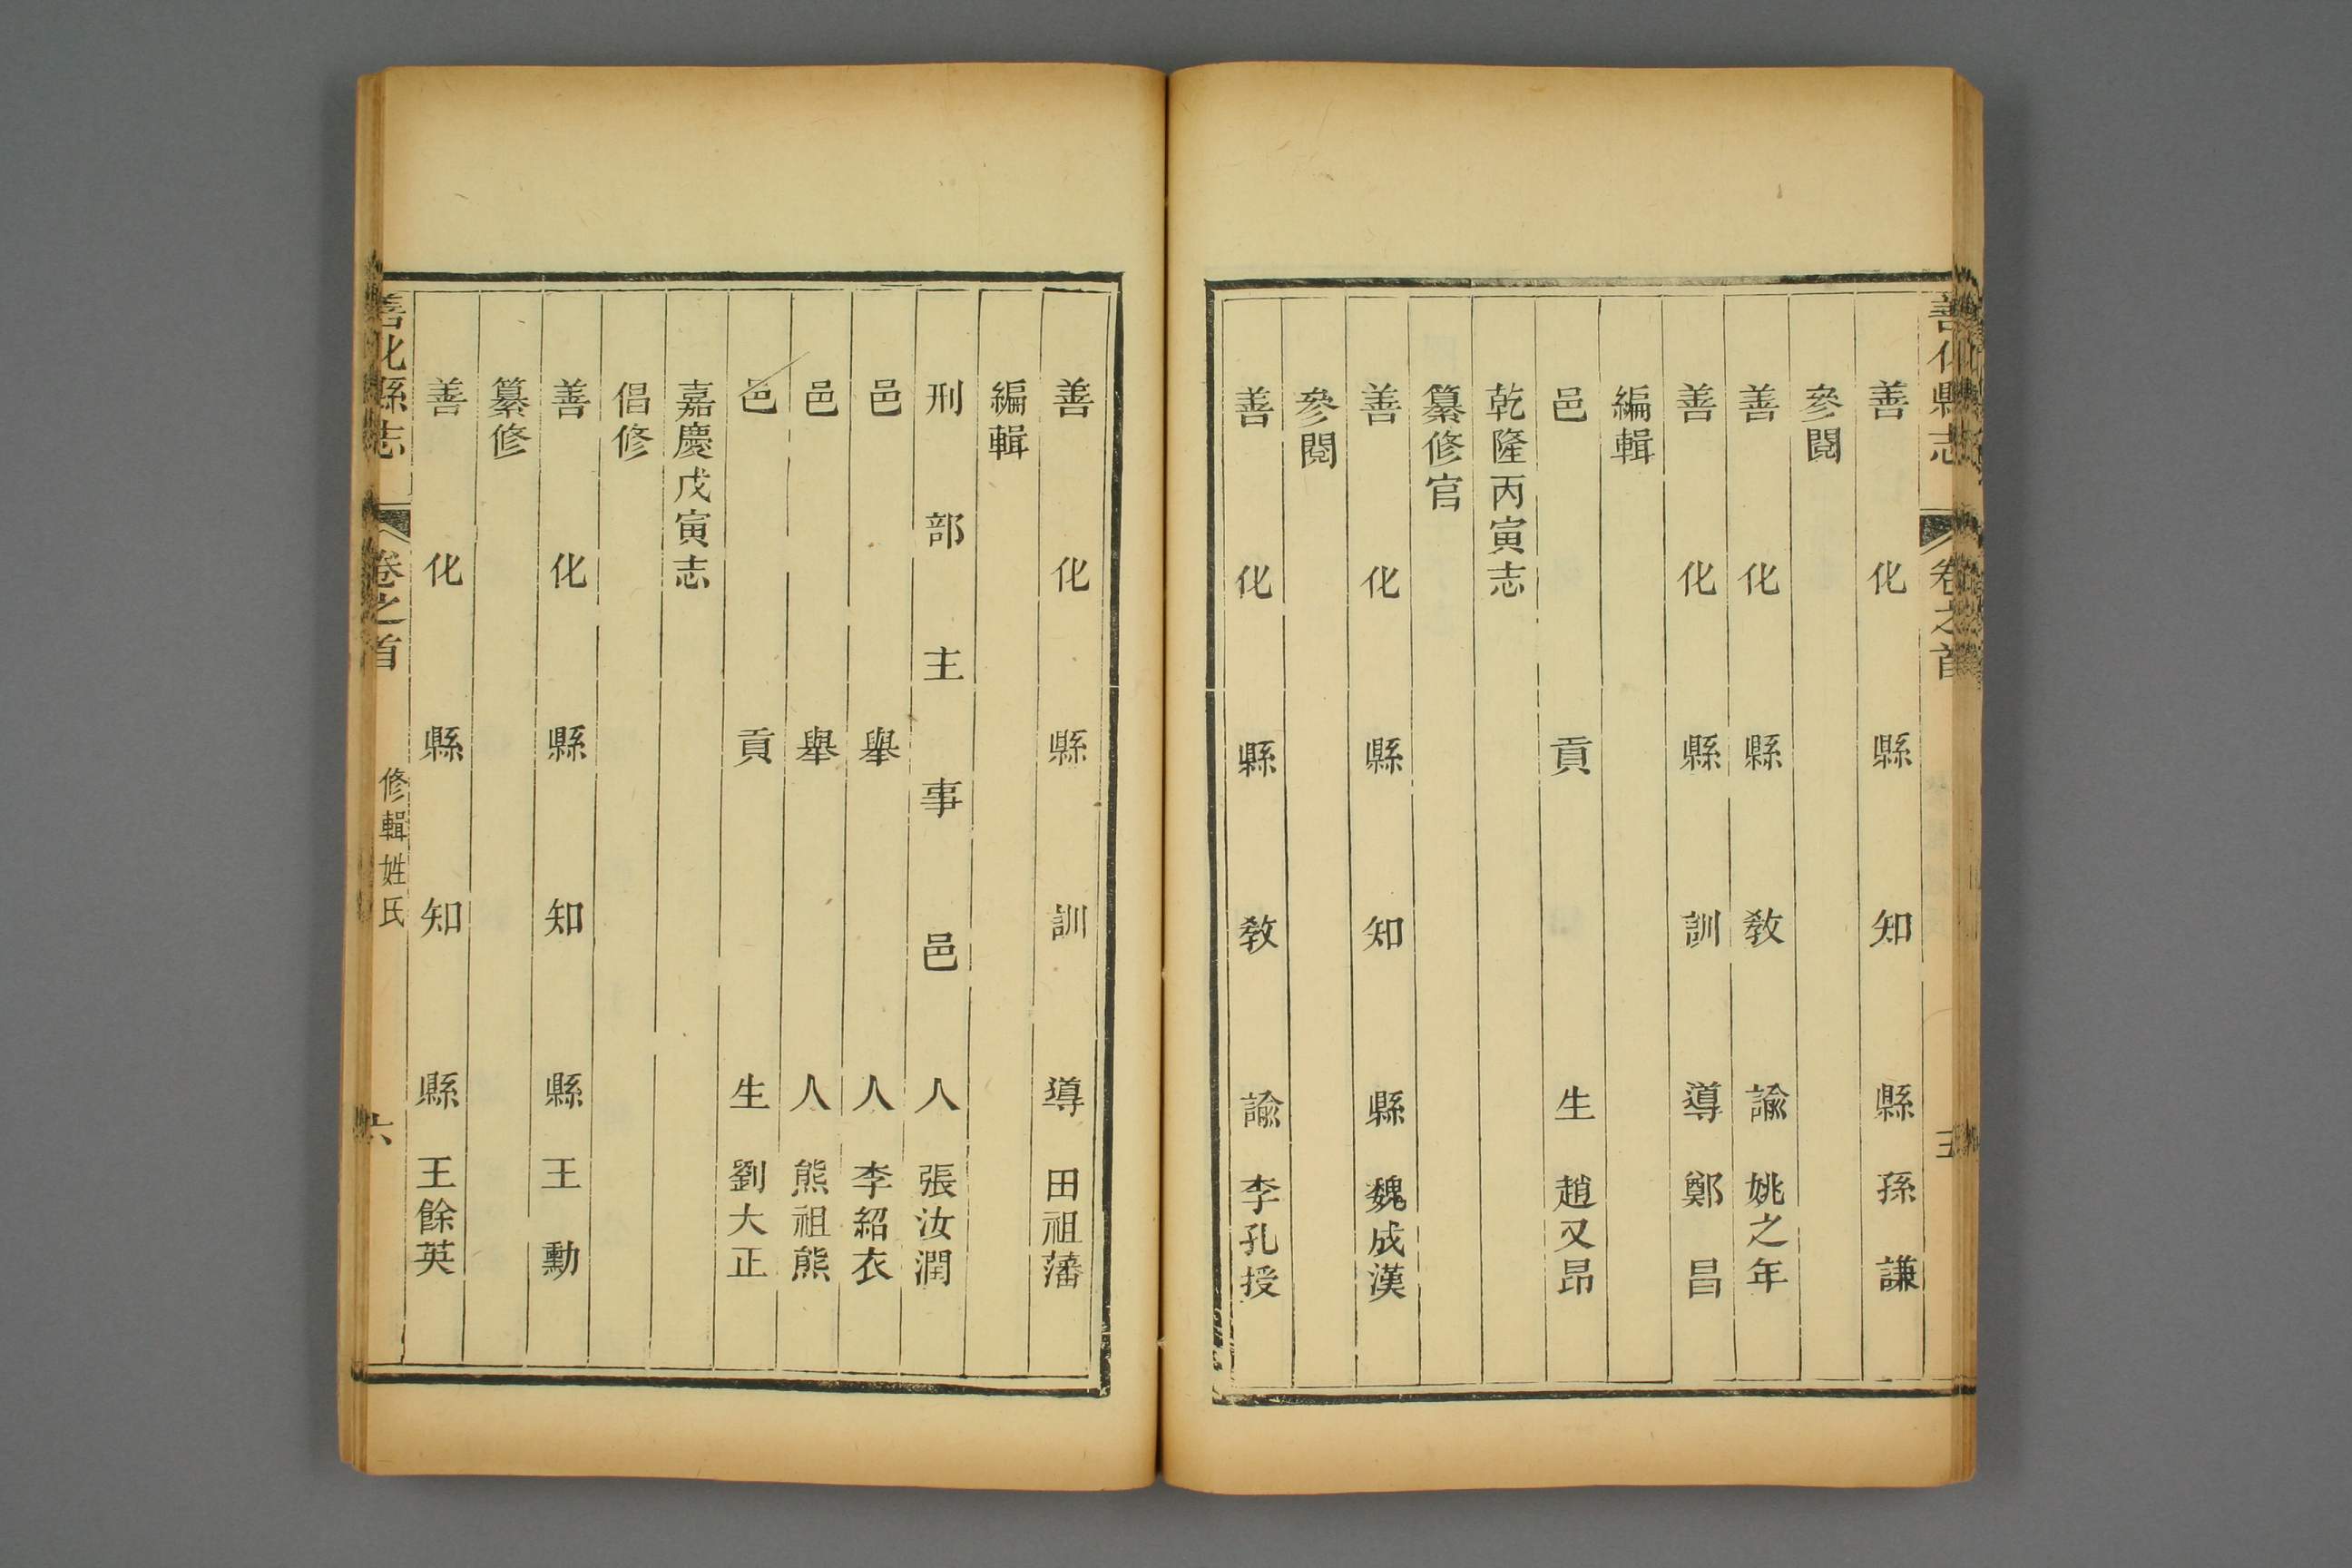 善化縣志 卷之首
善化縣知縣孫謙
參閱
善化縣教諭姚之年
善化縣訓導鄭昌
編輯
邑貢生趙又昂
乾隆丙寅志
纂修官
善化縣知縣魏成漢
參閱
善化縣教諭李孔授
善化縣訓導田祖藩
編輯
刑部主事邑人張汝潤
邑舉人李紹衣
邑舉人熊祖熊
邑貢生劉大正
嘉慶戊寅志
倡修
善化縣知縣王勳
纂修
善化縣知縣王餘英
善化縣志 卷之首 修輯姓氏 六